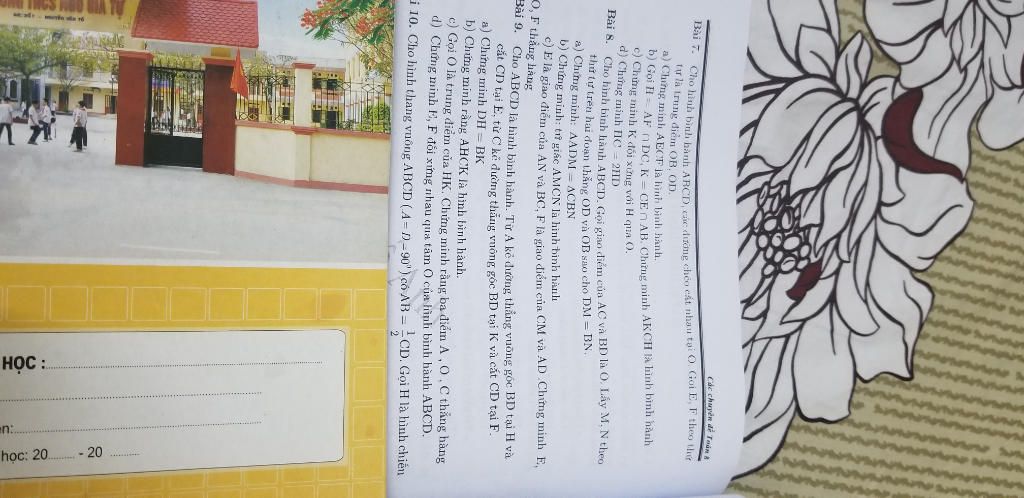 Các chuyên đề Toán 8
Bài 7. Cho hình bình hành ABCD, các đường chéo cắt nhau tại O. Gọi E, F theo thứ
tự là trung điểm OB, OD.
a) Chứng minh AECF là hình bình hành.
b) Gọi H = AF ∩ DC, K = CE ∩ AB. Chứng minh AKCH là hình bình hành
c) Chứng minh K đối xứng với H qua O.
d) Chứng minh HC = 2HD
Bài 8. Cho hình bình hành ABCD. Gọi giao điểm của AC và BD là O. Lấy M, N theo
thứ tự trên hai đoạn thẳng OD và OB sao cho DM = BN.
a) Chứng minh: ΔADM = ΔCBN
b) Chứng minh: tứ giác AMCN là hình bình hành
c) E là giao điểm của AN và BC, F là giao điểm của CM và AD. Chứng minh E,
O, F thẳng hàng
Bài 9. Cho ABCD là hình bình hành. Từ A kẻ đường thẳng vuông góc BD tại H và
cắt CD tại E, từ C kẻ đường thẳng vuông góc BD tại K và cắt CD tại F.
a) Chứng minh DH = BK
b) Chứng minh rằng AHCK là hình bình hành.
c) Gọi O là trung điểm của HK. Chứng minh rằng ba điểm A, O, C thẳng hàng
d) Chứng minh E, F đối xứng nhau qua tâm O của hình bình hành ABCD.
i 10. Cho hình thang vuông ABCD (A = D = 90°) có AB = 1/2 CD. Gọi H là hình chiếu
THCS NGÔ GIA TỰ
HỌC :
ên:
học: 20 - 20